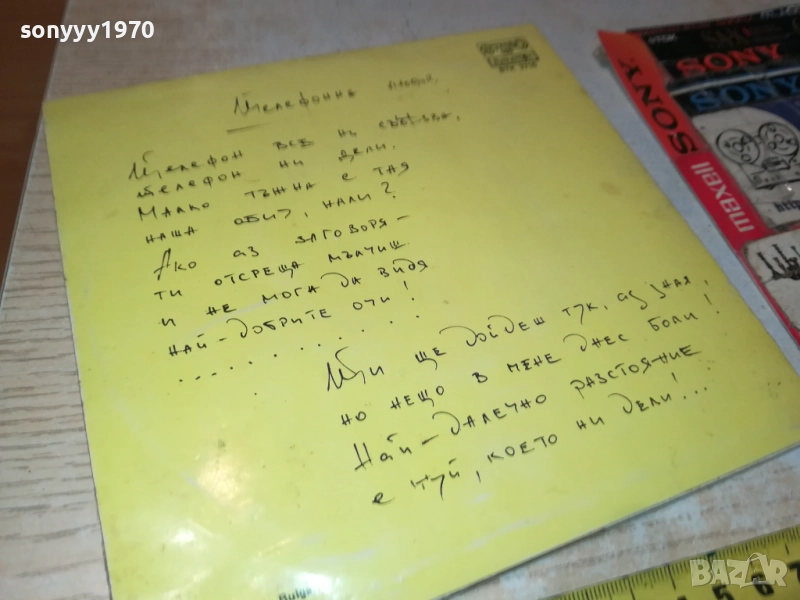 sonyyy1970
Телефонна любов
Телефон все ни свързва,
телефон ни дели,
Малко тъжна е тая
наша обич, нали?
Ако аз заговоря –
ти отсреща мълчиш
и не мога да видя
най-добрите очи!
. . . . . . . . . .
Ти ще дойдеш тук, аз зная,
но нещо в мене днес боли!
Най-далечно разстояние
е туй, което ни дели!...
TDK
SONY
SONY
SONY
maxell
BAZAR